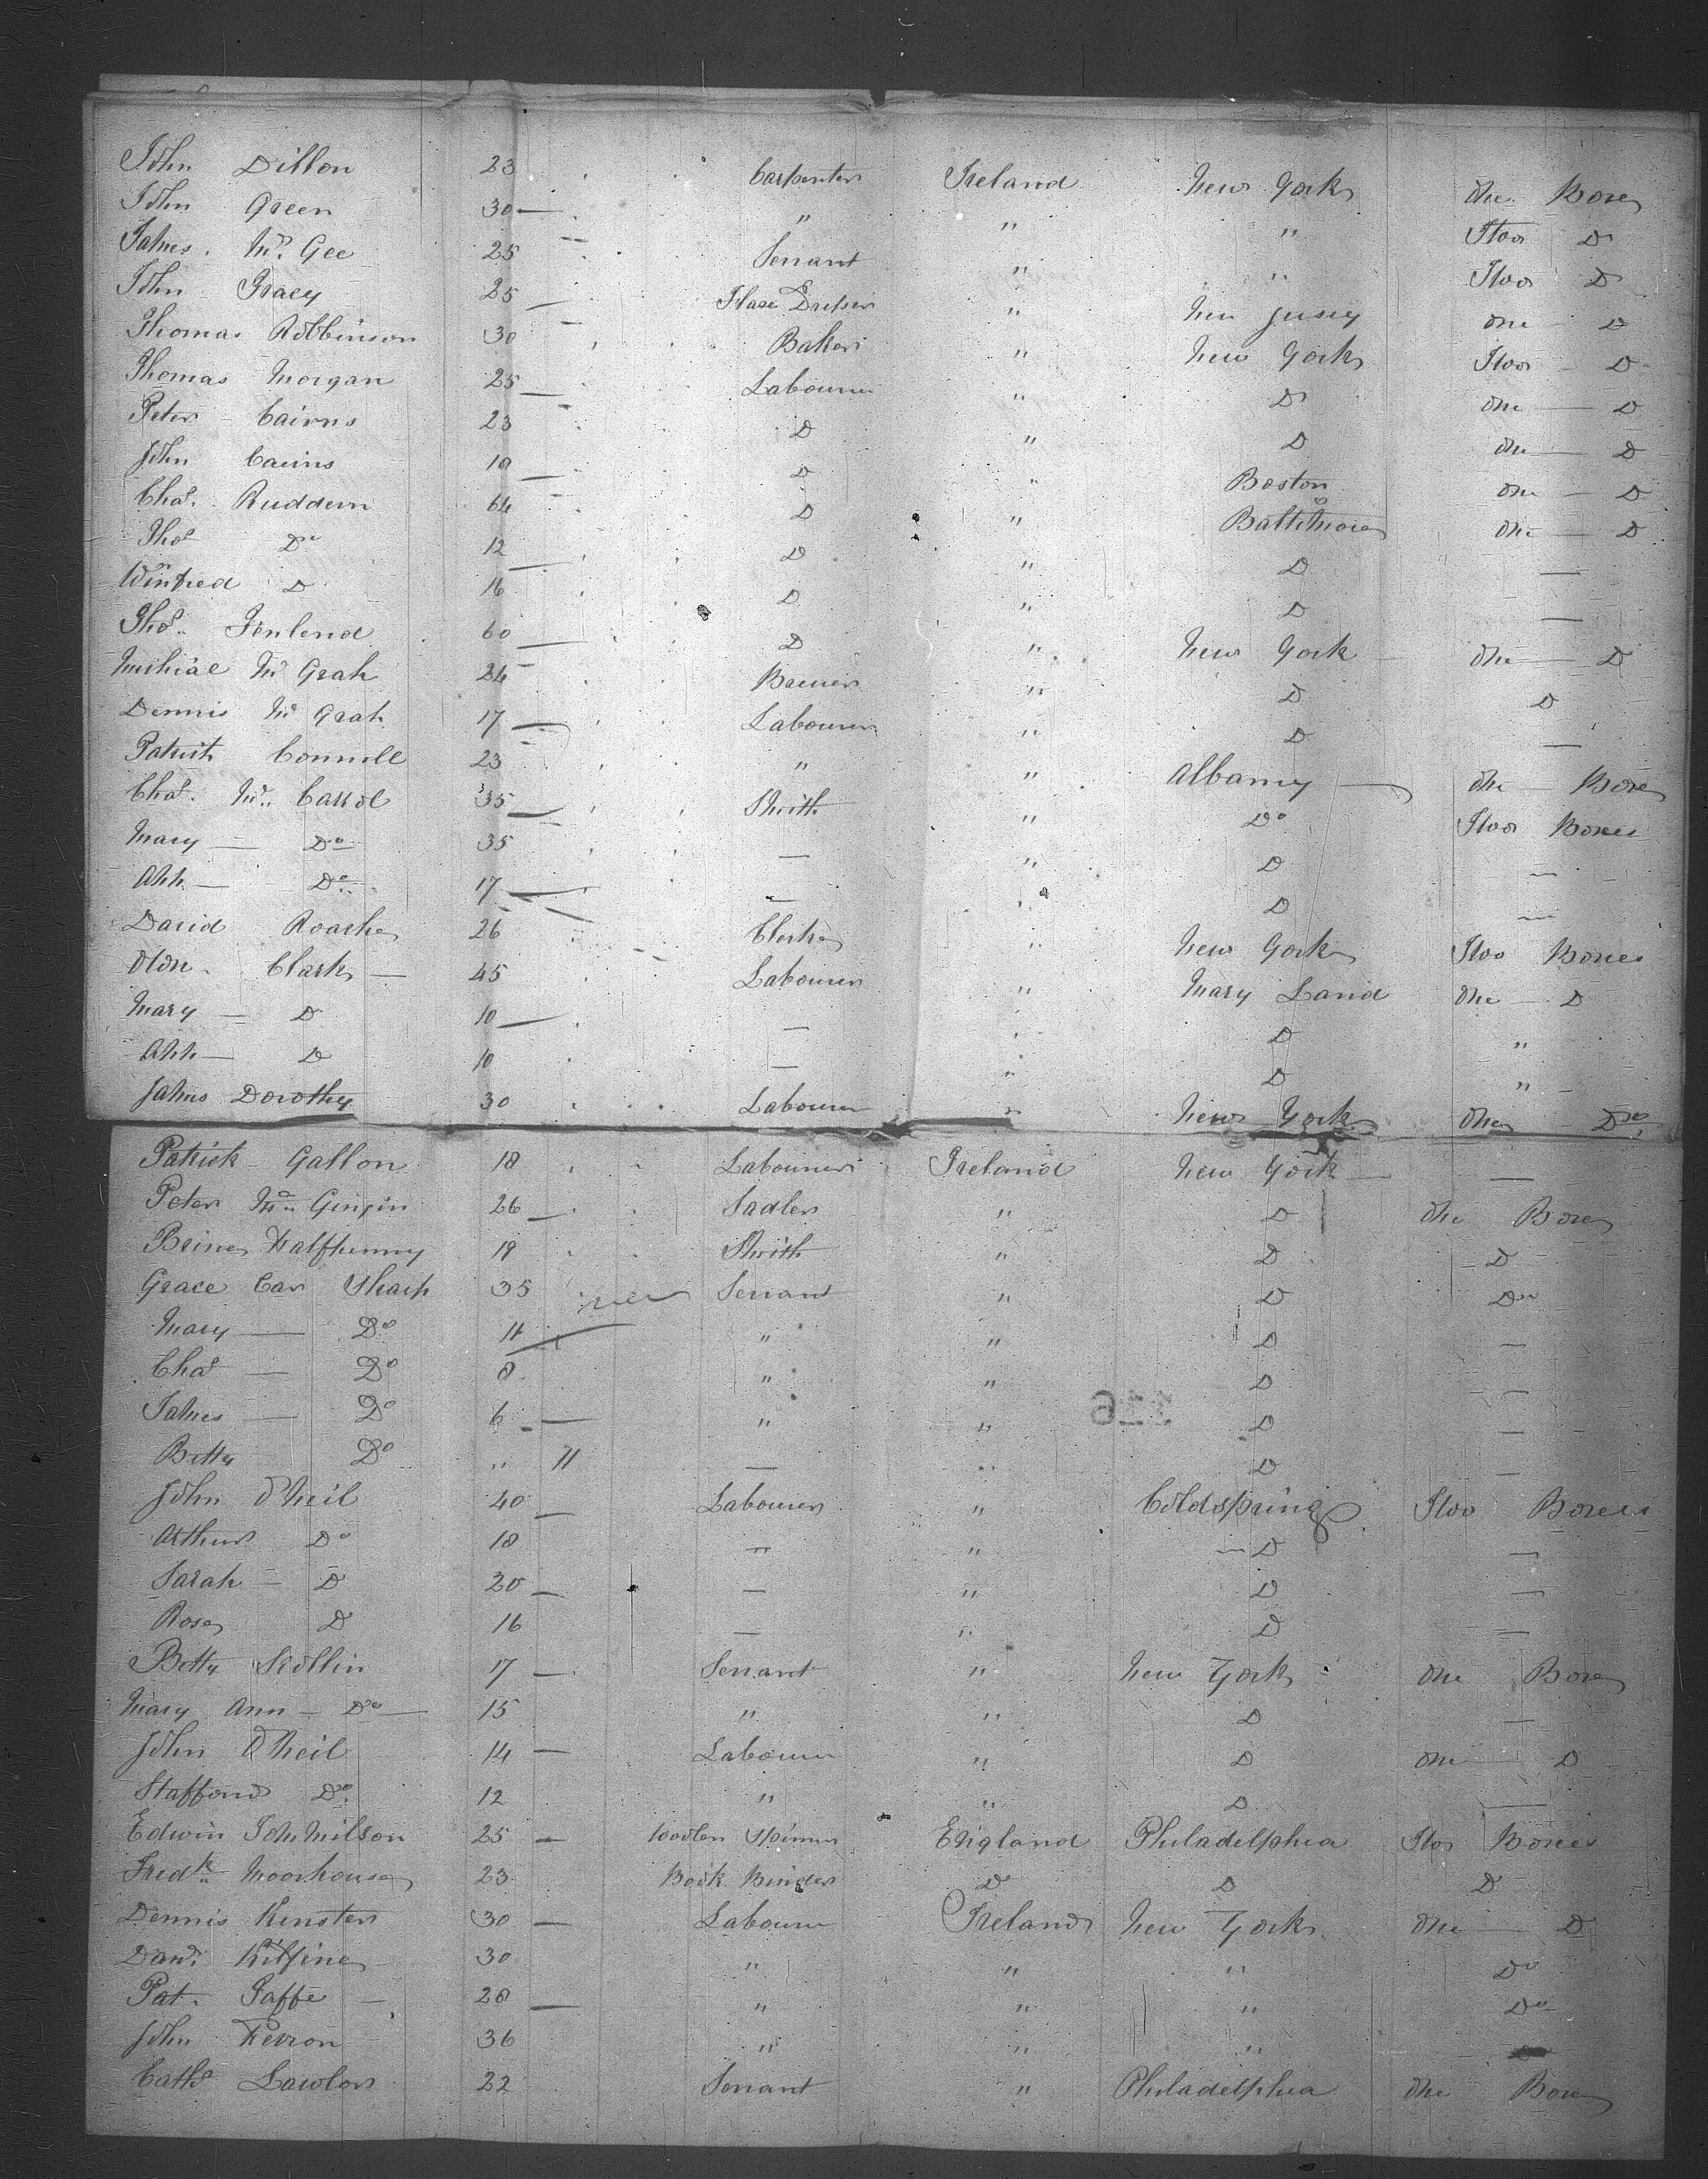 John Dillon 23 Carpenter Ireland New York One Box
John Green 30 " " " Two D
James McGee 25 Servant " " Two D
John Gracy 25 Flax Dresser " New Jersey One D
Thomas Robbinson 30 Baker " New York Two D
Thomas Morgan 25 Labourer " D One D
Peter Cairns 23 D " D One D
John Cairns 18 D " Boston One D
Chas. Ruddern 64 D " Baltimore One D
Thos Do 12 D " D —
Winfred D 16 D " D —
Thos. 60 D " New York One D
Michial Mc Grah 24 Brewer " D D
Dennis Mc Grah 17 Labourer " D —
Patrick Connell 23 " " Albany One Box
Chas. Mc Carrol 35 Smith " Do Two Boxes
Mary — Do 35 — " D —
Ann — Do 17 — " D —
David Roarke 26 Clerke " New York Two Boxes
Clark — 45 Labourer " Mary Land One D
Mary — D 10 — " D "
Ann — D 10 — " D "
James Dorothy 30 Labourer " New York One Do
Patrick Gallon 18 Labourer Ireland New York —
Peter 26 Sadler " D One Box
Brine Halfpenny 19 Smith " D D
Grace Car Sharp 35 Servant " D Do
Mary — Do 11 " " D —
Chas — Do 8 " " D —
James — Do 6 " " D —
Betty Do " 11 — " D —
John O'Neil 40 Labourer " Coldspring Two Boxes
Arthur Do 18 — " D —
Sarah — D 20 — " D —
Rose D 16 — " D —
Betty 17 Servant " New York One Box
Mary Ann — Do 15 " " D —
John O'Neil 14 Labourer " D One D
Stafford Do. 12 " " D —
Edwin 25 Woolen Spinner England Philadelphia Two Boxes
Fredk Moorhouse 23 Book Binder Do D D
Dennis Kinster 30 Labourer Ireland New York One D
Dand. 30 " " " Do
Pat. Gaffe — 28 " " " Do
John 36 " " "
Caths Lawlor 22 Servant " Philadelphia One Box